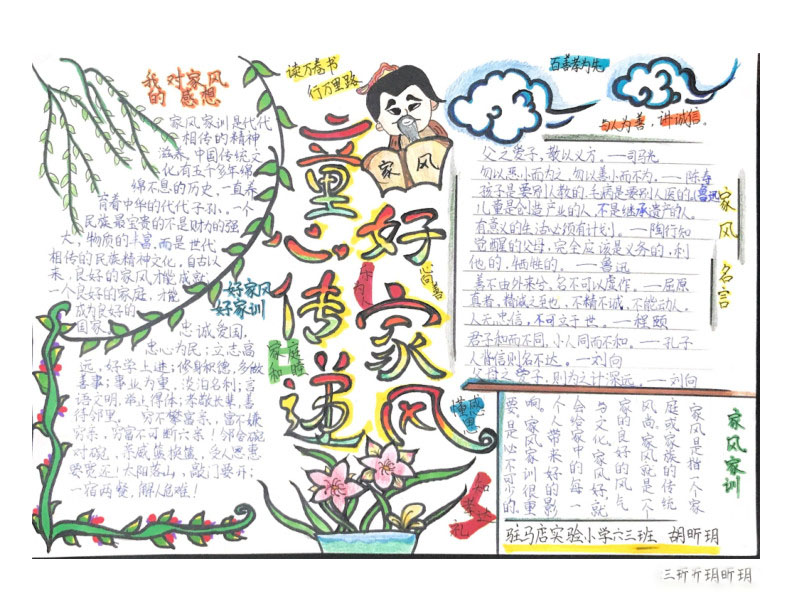 我对家风
的感想
家风家训是代代
相传的精神
滋养,中国传统文
化有五千多年绵
绵不息的历史,一直养
育着中华的代代子孙。一个
民族最宝贵的不是财力的强
大,物质的丰富,而是世代
相传的民族精神文化,自古以
来,良好的家风才能成就
一个良好的家庭,才能
成为良好的
国家。
好家风
好家训
忠诚爱国,
忠心为民;立志高
远,好学上进;修身积德,多做
善事;事业为重,淡泊名利;言
语文明,举止得体;孝敬长辈,善
待邻里。穷不攀富亲,富不嫌
穷亲,穷富不可断六亲!邻舍碗
对碗,亲戚篮换篮,受人恩惠
要宽还!太阳落山,敲门要开;
一宿两餐,解人危难!
读万卷书
行万里路
家风
童心传递
好家风
乐为人
心向善
家庭
和睦
懂感恩
知书达礼
百善孝为先
与人为善,讲诚信。
父之爱子,教以义方。——司马光
勿以恶小而为之,勿以善小而不为。——陈寿
孩子是要别人教的,毛病是要别人医的。(鲁迅
儿童是创造产业的人,不是继承遗产的人。
有意义的生活必须有计划。——陶行知
觉醒的父母,完全应该是义务的,利
他的,牺牲的。——鲁迅
善不由外来兮,名不可以虚作。——屈原
真者,精诚之至也,不精不诚,不能动人。
人无忠信,不可立于世。——程颐
君子和而不同,小人同而不和。——孔子
人背信则名不达。——刘向
父母之爱子,则为之计深远。——刘向
家风名言
家风家训
家风是指一个家
庭或家族的传统
风尚。家风就是一个
家的良好的风气
与文化。家风好,就
会给家中的每一
个人带来好的影
响。家风家训很重
要,是必不可少的。
驻马店实验小学六三班 胡昕玥